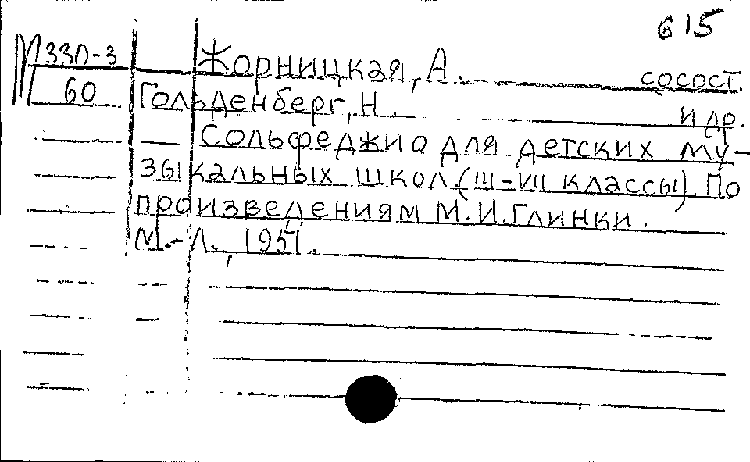 615
М330-3 Жорницкая, А. сосост.
60 Гольденберг, Н. и др.
Сольфеджио для детских му-
зыкальных школ (III-VII классы) По
произведениям М.И.Глинки.
М.-Л., 1951.